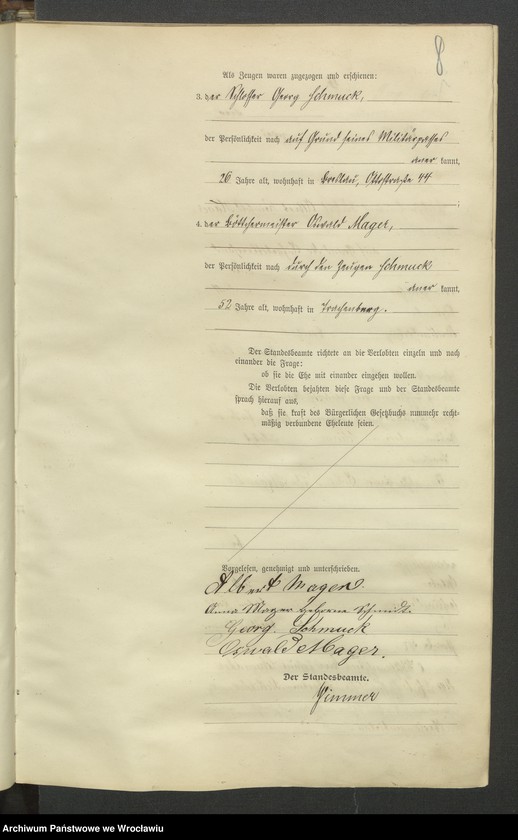 8
Als Zeugen waren zugezogen und erschienen:
3. der Schlosser Georg Schmuck,
der Persönlichkeit nach auf Grund seines Militärpasses
aner kannt,
26 Jahre alt, wohnhaft in Breslau, Ottostraße 44
;
4. der Böttchermeister Oswald Mager,
der Persönlichkeit nach durch den Zeugen Schmuck
aner kannt,
52 Jahre alt, wohnhaft in Trachenberg.
Der Standesbeamte richtete an die Verlobten einzeln und nach
einander die Frage:
ob sie die Ehe mit einander eingehen wollen.
Die Verlobten bejahten diese Frage und der Standesbeamte
sprach hierauf aus,
daß sie kraft des Bürgerlichen Gesetzbuchs nunmehr recht-
mäßig verbundene Eheleute seien.
Vorgelesen, genehmigt und unterschrieben.
Albert Mager
Anna Mager geborene Schmidt.
Georg Schmuck
Oswald Mager.
Der Standesbeamte.
Zimmer
Archiwum Państwowe we Wrocławiu